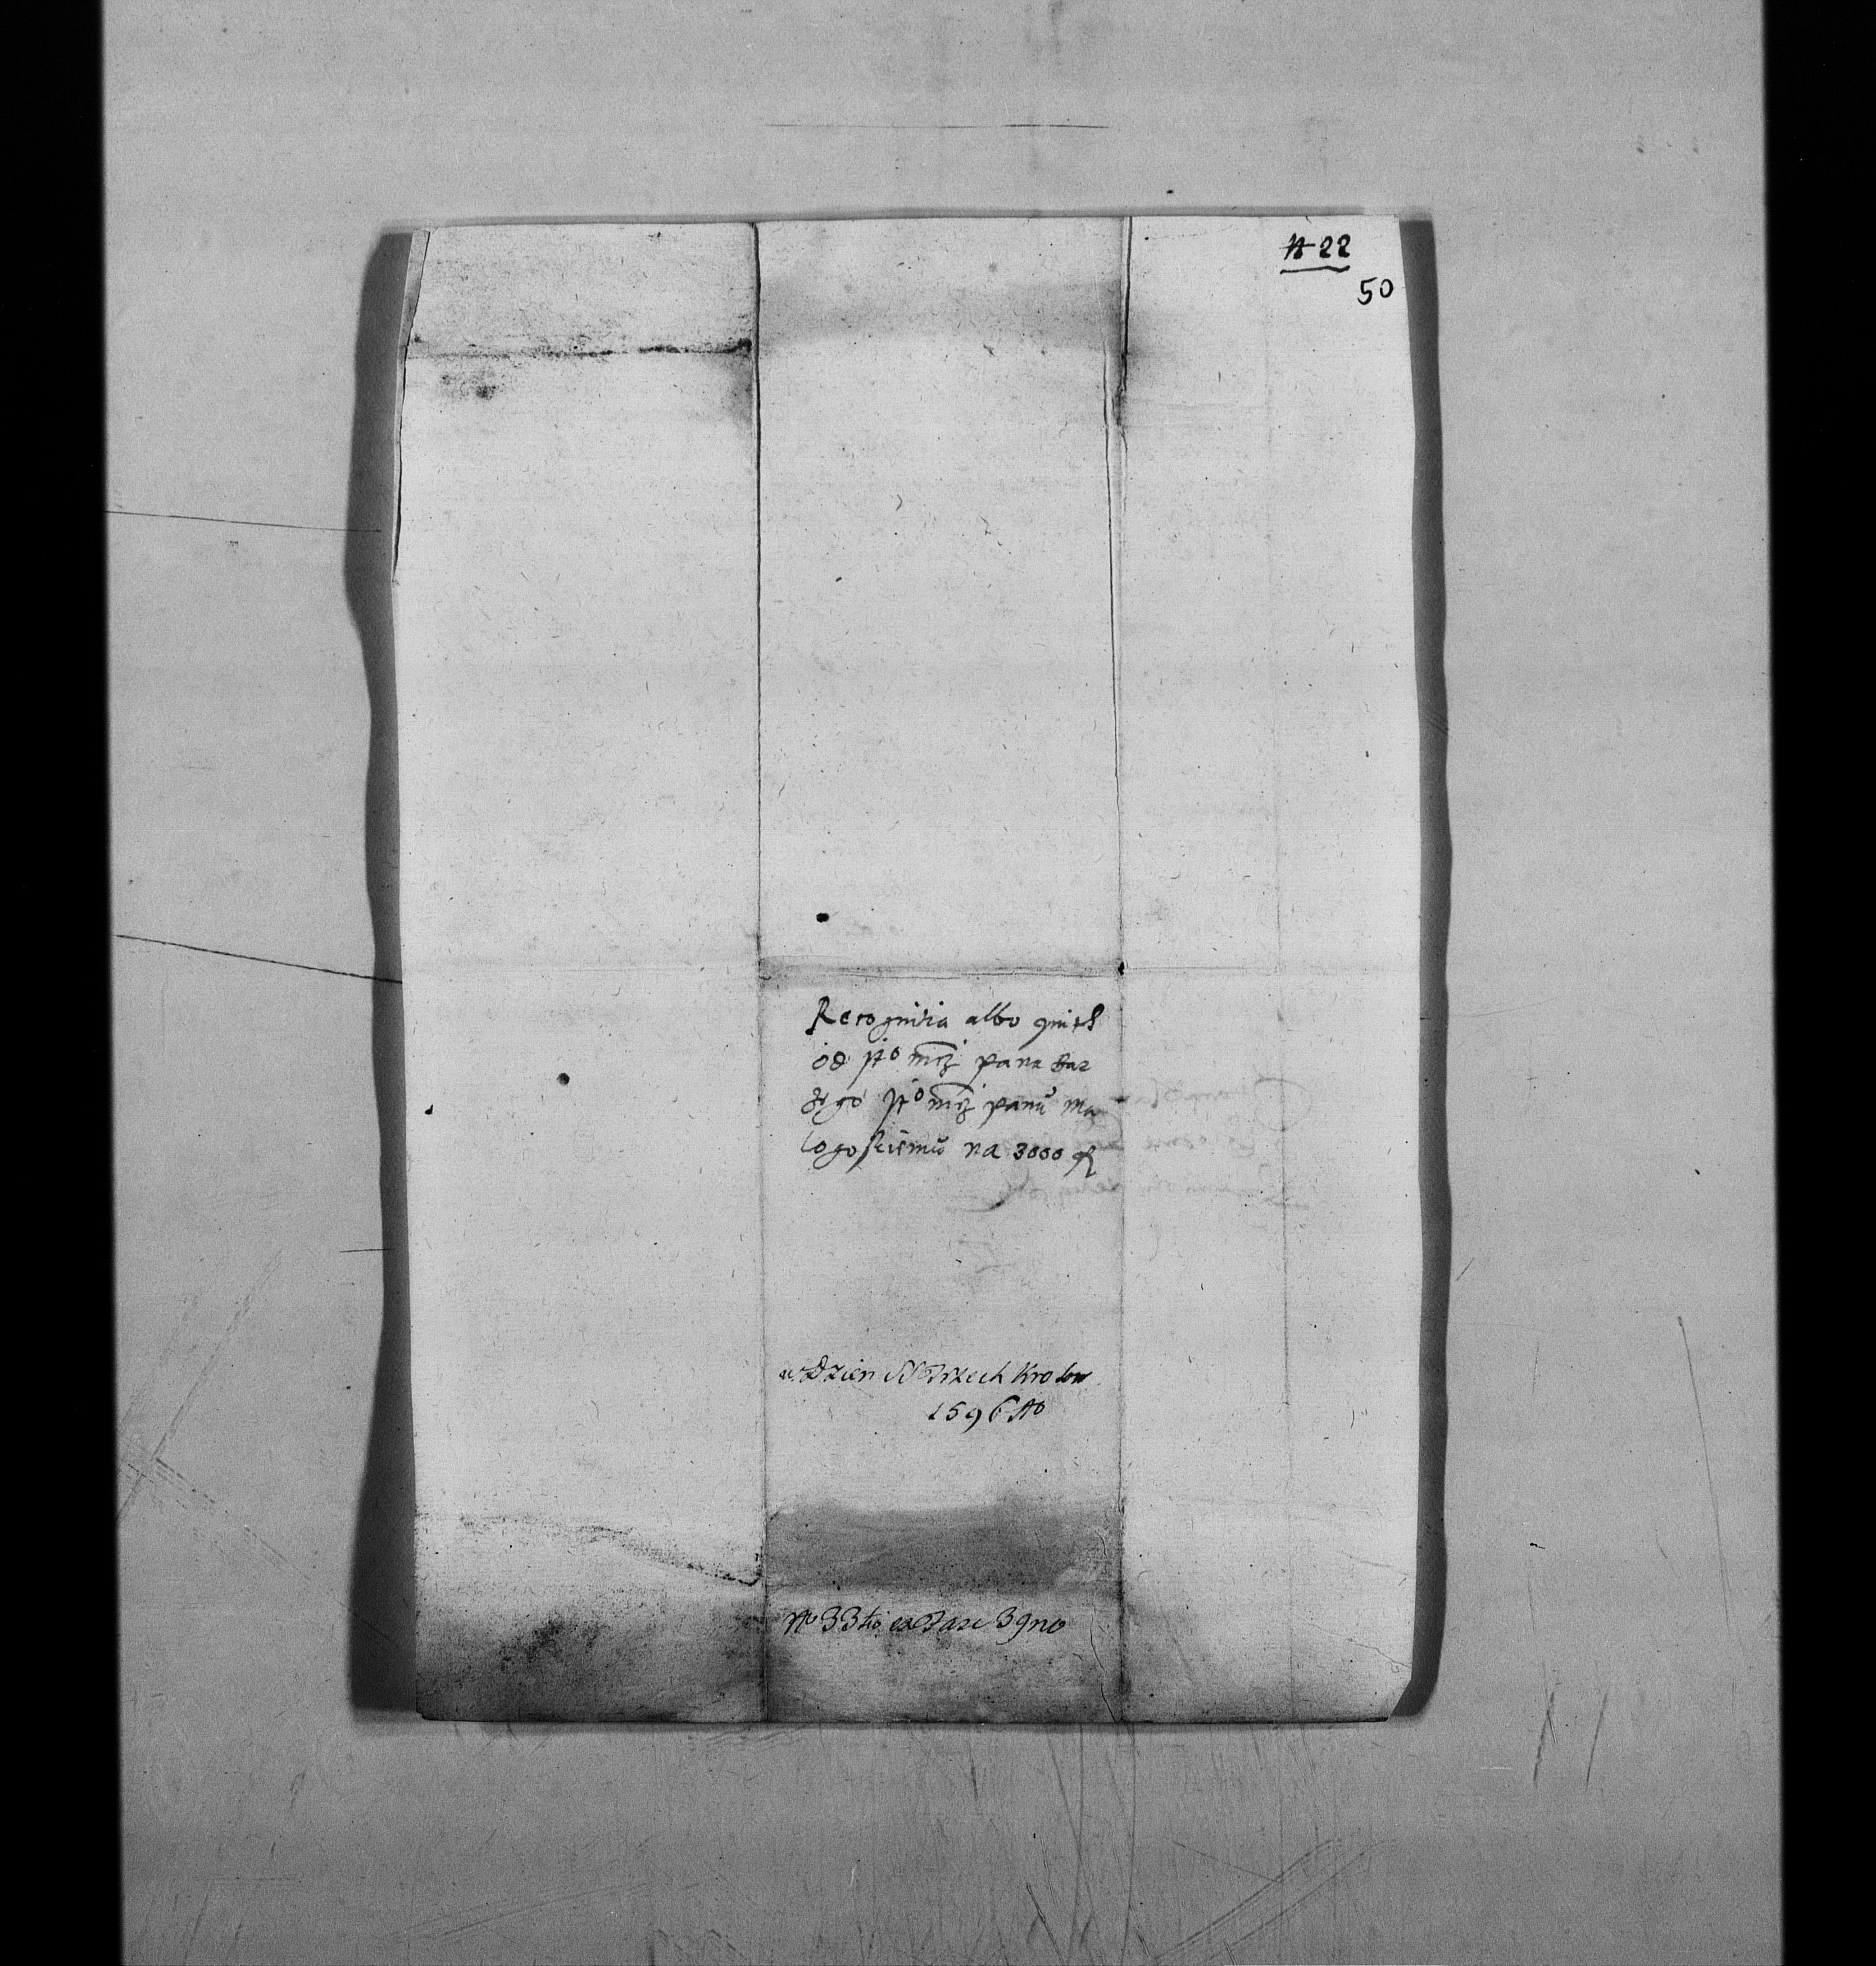 N 22
50
Recognitia albo qwith
od je⁰ mcz pana Bar
zego je⁰ mcz panu Ma
logoskiemu na 3000 zł
w Dzien SS Trzech Krolow
1596 A⁰
N⁰ 33tio ex Fasc 39no